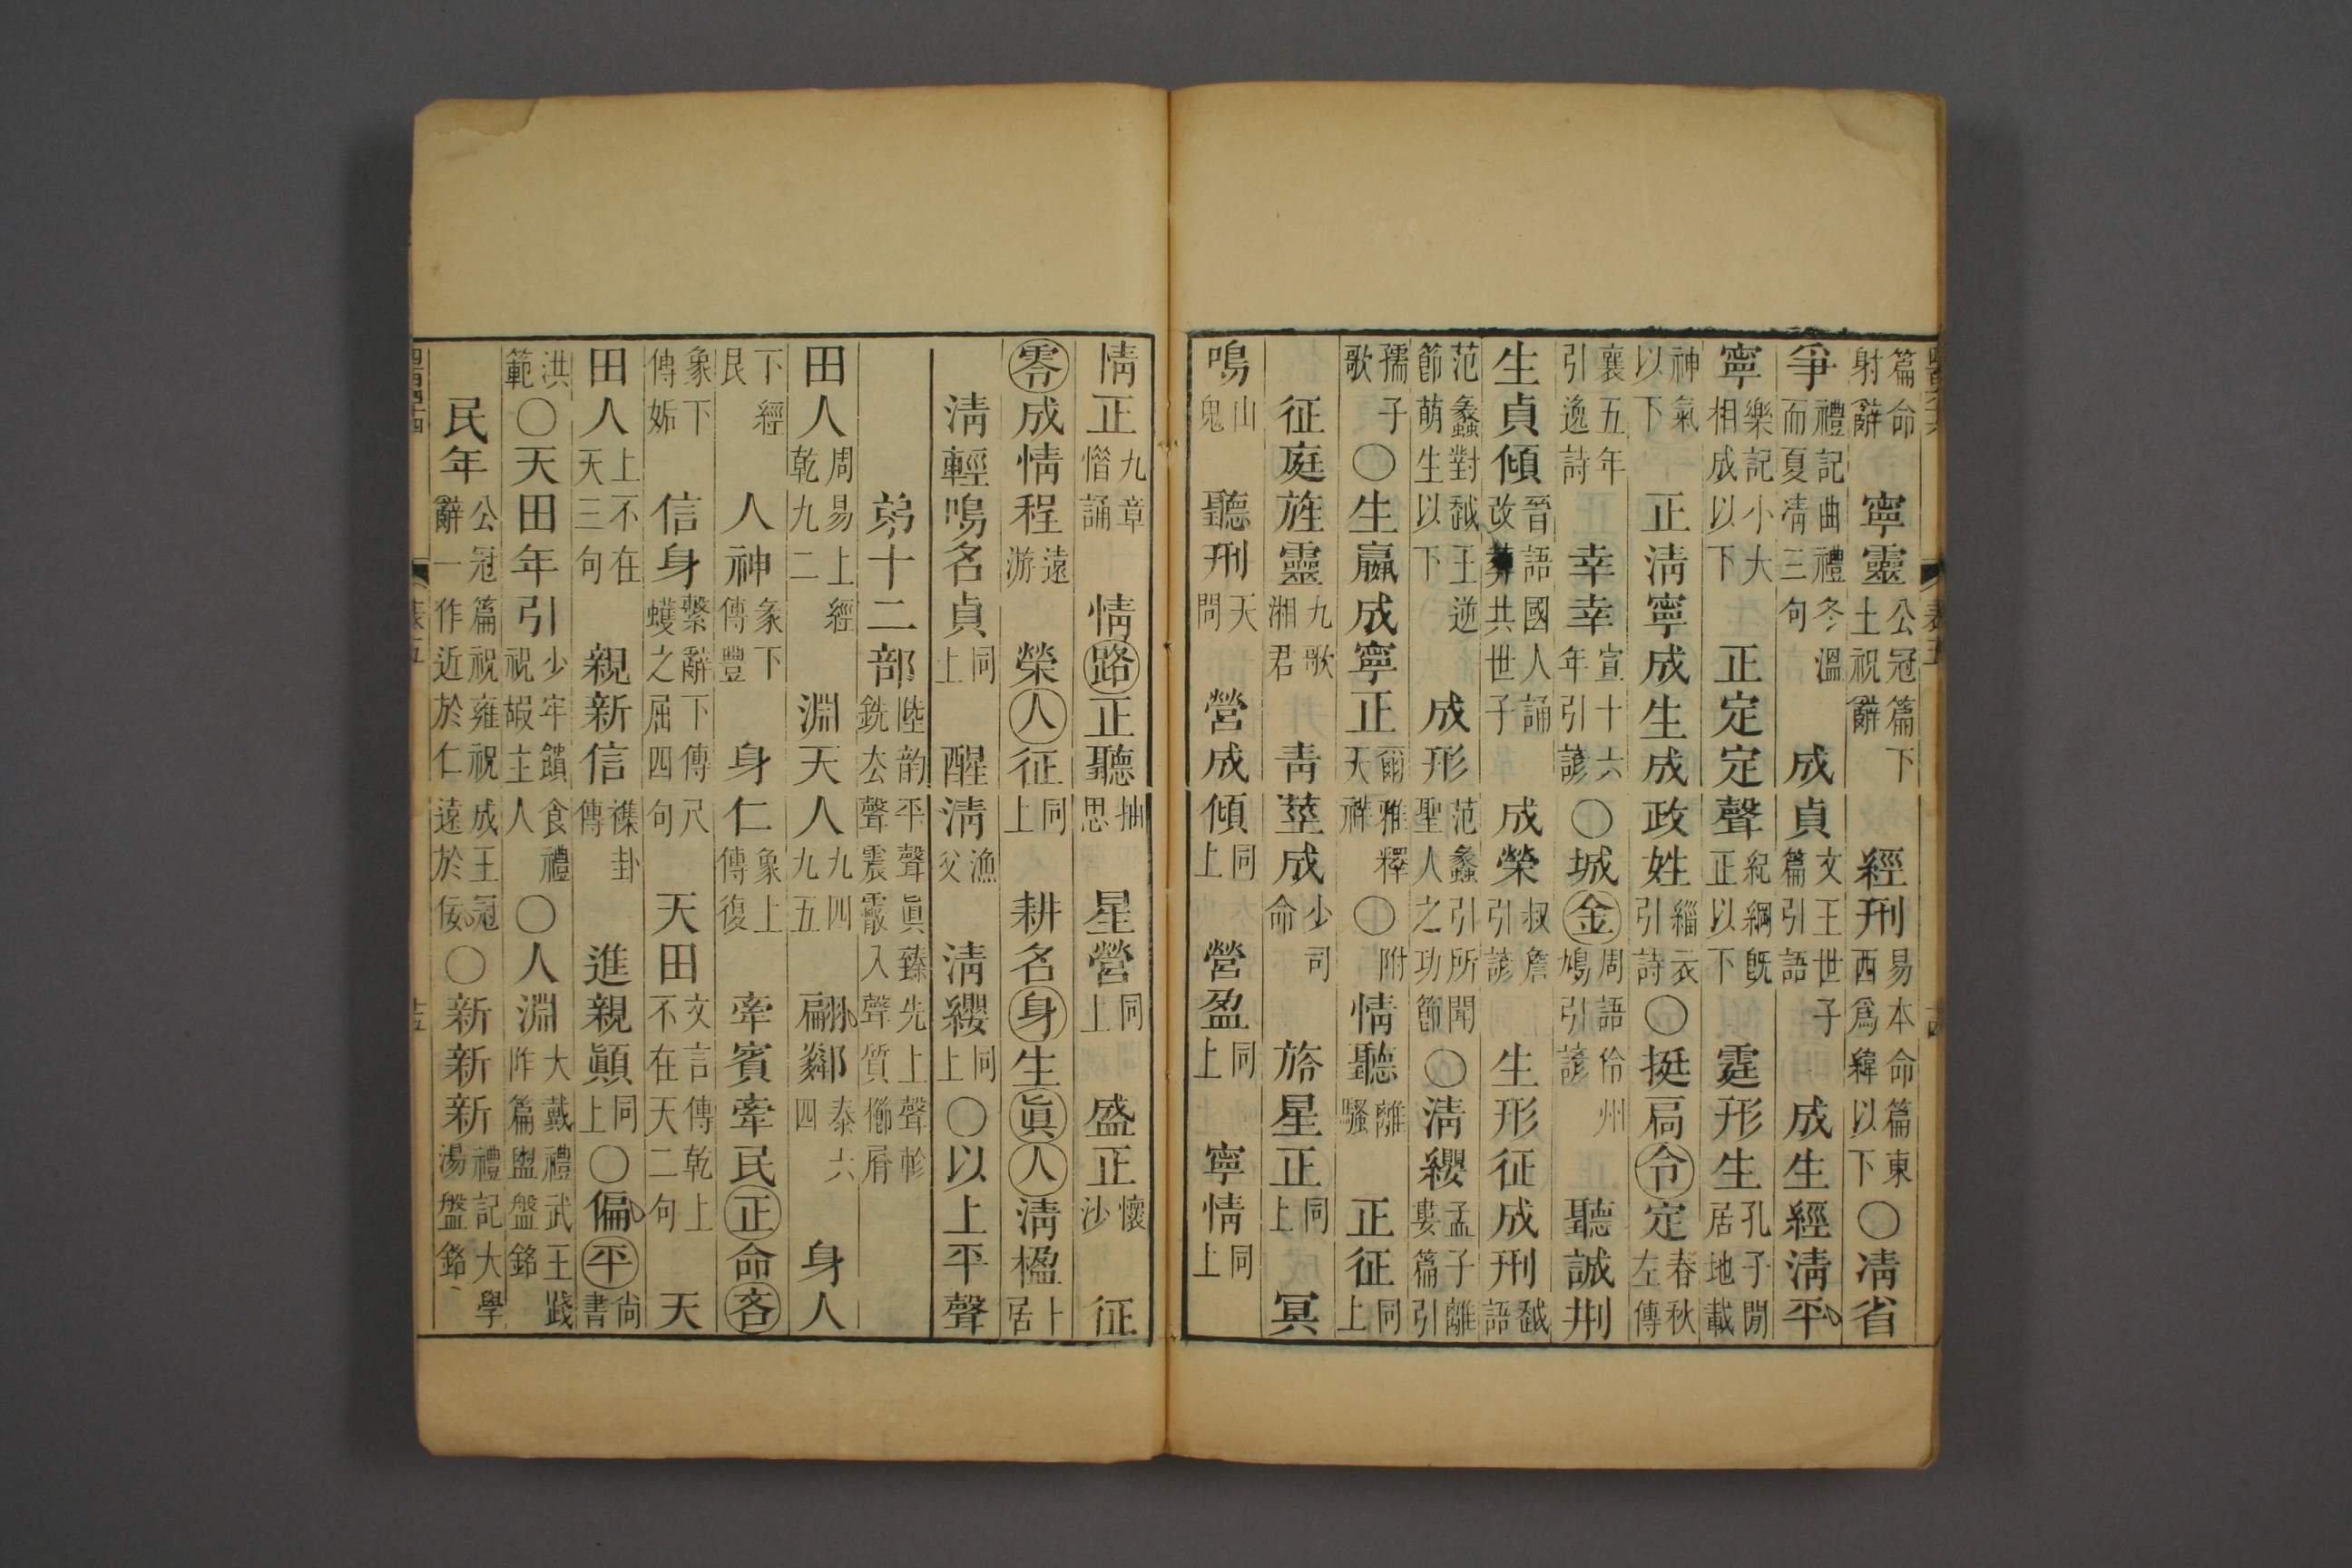 篇命射辭　寧靈公冠篇下土祝辭　經刑易本命篇東西爲緯以下〇清省
爭禮記曲禮冬溫而夏凊三句　成貞文王世子篇引語　成生經淸平
寧樂記小大相成以下　正定定聲紀綱旣正以下　霆形生孔子閒居地載
神氣以下　正淸寧成生成政姓緇衣引詩〇挺扃令定春秋左傳
襄五年引逸詩　幸幸宣十六年引諺〇城金周語伶州鳩引諺　聽誠刑
生貞傾晉語國人誦改葬共世子　成榮叔詹引諺　生形征成刑越語
范蠡對越王逆節萌生以下　成形范蠡引所聞聖人之功節〇淸纓孟子離婁篇引
孺子歌〇生嬴成寧正爾雅釋天祥〇附　情聽離騷　正征同上
征庭旌靈九歌湘君　靑莖成少司命　旍星正同上　冥
鳴山鬼　聽刑天問　營成傾同上　營盈同上　寧情同上
情正九章惜誦　情路正聽抽思　星營同上　盛正懷沙　征
零成情程遠游　榮人征同上　耕名身生眞人淸楹卜居
淸輕鳴名貞同上　醒淸漁父　淸纓同上〇以上平聲
弟十二部陸韵平聲眞臻先上聲軫銑去聲震霰入聲質櫛屑
田人周易上經乾九二　淵天人九四九五　翩鄰泰六四　身人
下經艮　人神彖下傳豐　身仁象上傳復　牽賓牽民正命吝
象下傳姤　信身繫辭下傳尺蠖之屈四句　天田文言傳乾上不在天二句　天
田人上不在天三句　親新信襍卦傳　進親顚同上〇偏平尙書
洪範〇天田年引少牢饋食禮祝嘏主人〇人淵大戴禮武王踐阼篇盥盤銘
民年公冠篇祝雍祝成王冠辭一作近於仁遠於佞〇新新新禮記大學湯盤銘